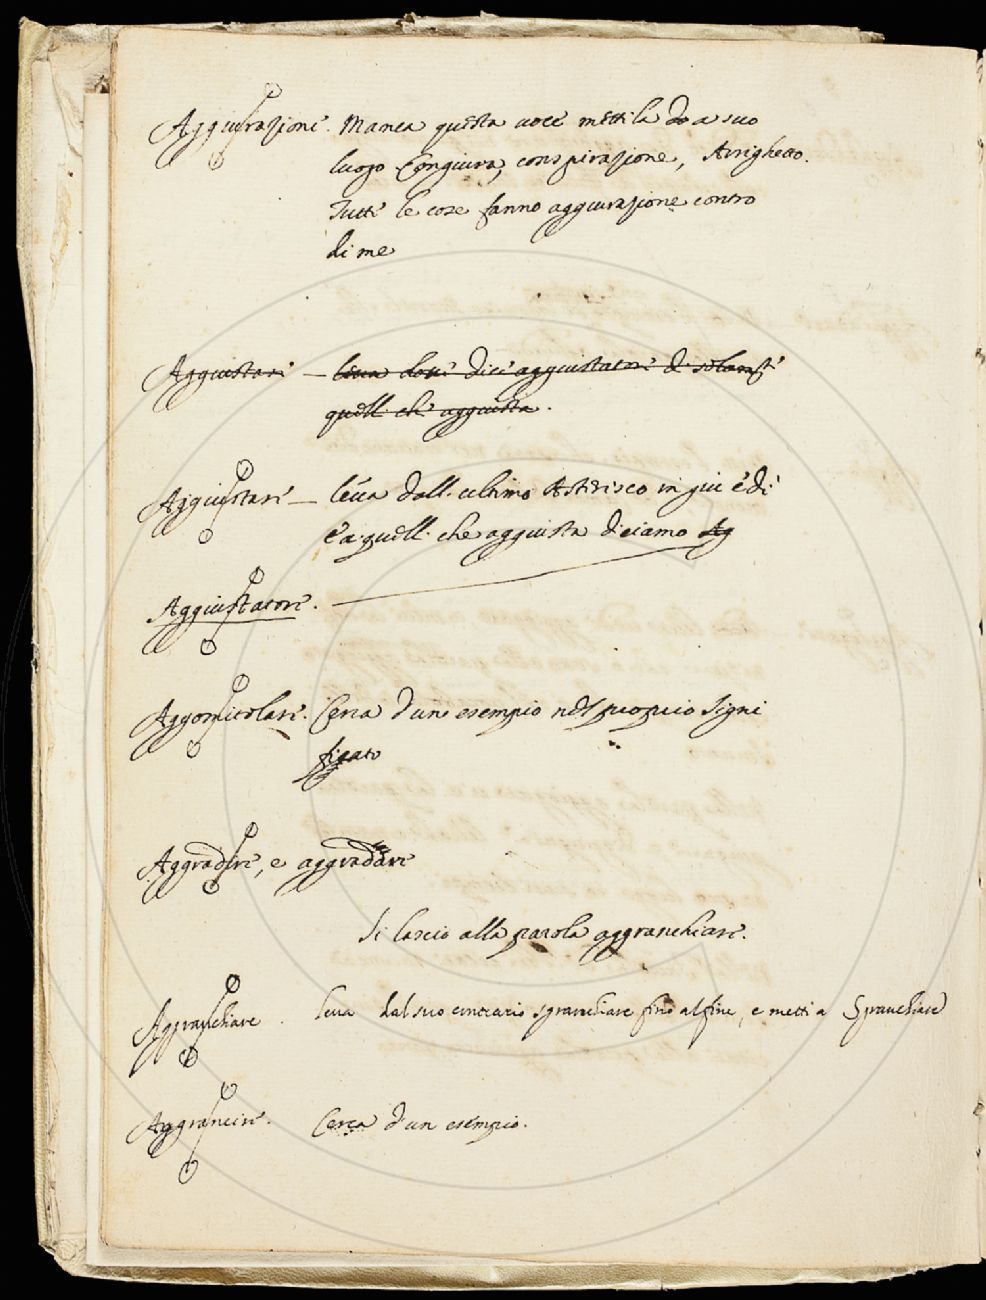 Aggiurazione. Manca questa voce mettila do a suo
luogo Congiura, conspirazione, Arrighetto.
Tutte le cose fanno aggiurazione contro
di me
Aggiustare – leva dove dice aggiustatore di solamte
quell. che aggiusta.
Aggiustare – leva dall. ultimo Asterisco in giu e di
e a quell. che aggiusta diciamo Ag
Aggiustatore.
Aggomitolare. Cerca d'uno esempio nel proprio signi
ficato
Aggradire, e aggradare
Si lascio alla parola aggranchiare.
Aggranchiare. leva dal suo contrario sgranchiare fino al fine, e metti a Sgranchiare
Aggrancire. Cerca d'un esempio.